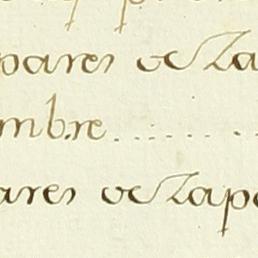 pares de Za
mbre.......
ares de Zapa